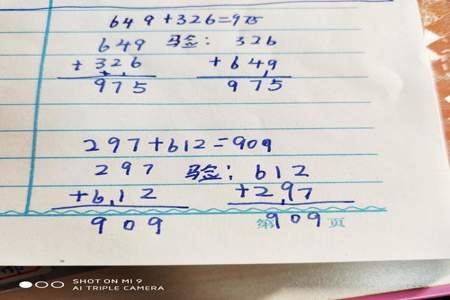 649+326=975
649 验: 326
+326 +649
975 975
297+612=909
297 验: 612
+612 +297
909 909
第 页
SHOT ON MI 9
AI TRIPLE CAMERA